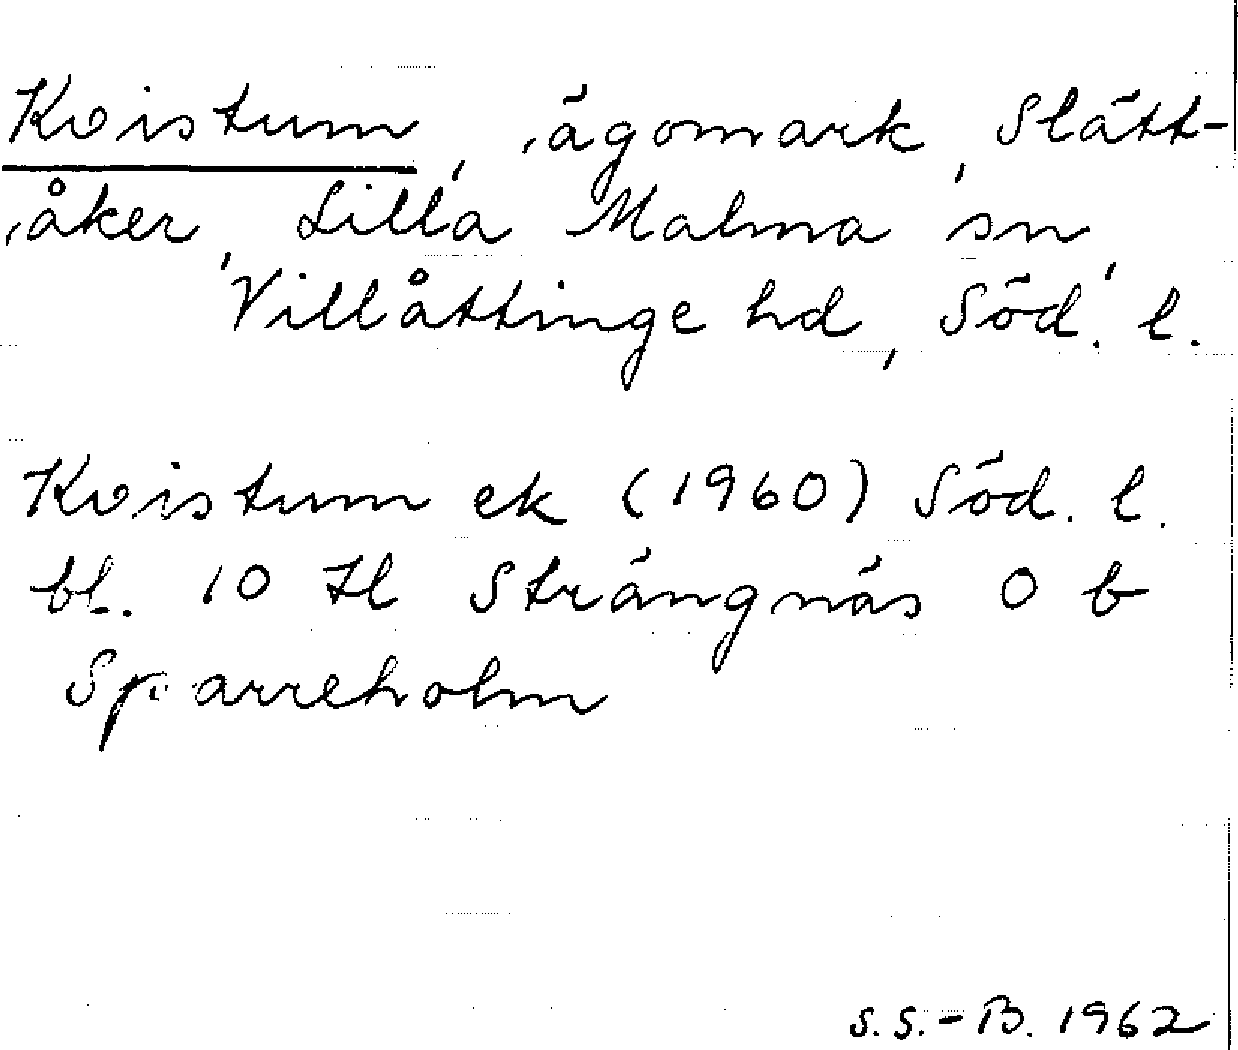 Kvistum, ägomark, Slätt-
åker, Lilla Malma sn,
Villåttinge hd, Söd. l.
Kvistum ek (1960) Söd. l.
bl. 10 Il Strängnäs 0 b
Sparreholm
S.S.-B. 1962